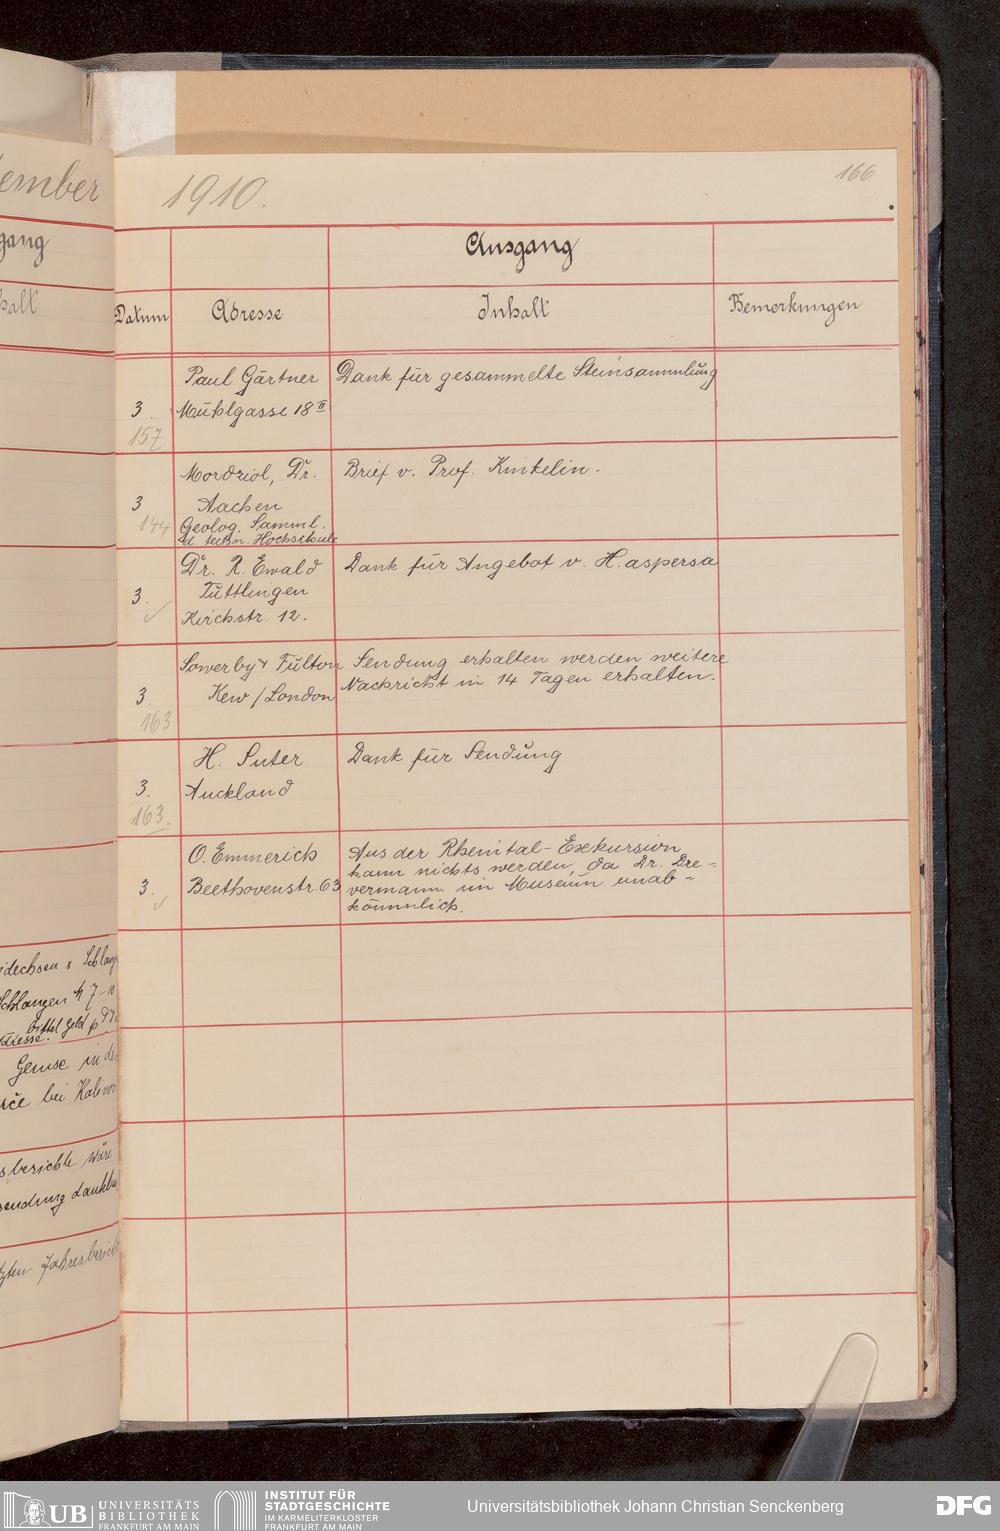 ember
gang
halt
1910.
166
Ausgang
Datum
Adresse
Inhalt
Bemerkungen
Paul Gärtner
Dank für gesammelte Steinsammlung
3.
Mühlgasse 18 II
157
Mordziol, Dr.
Brief v. Prof. Kinkelin.
3
Aachen
144
Geolog. Samml.
d. techn. Hochschule
Dr. R. Ewald
Dank für Angebot v. H. aspersa
3.
Tuttlingen
Kirchstr. 12.
Sowerby & Fulton
Sendung erhalten werden weitere
Nachricht in 14 Tagen erhalten.
3.
Kew / London
163
H. Suter
Dank für Sendung
3.
Auckland
163.
O. Emmerich
Aus der Rheintal-Exkursion
kann nichts werden, da Dr. Dre=
3.
Beethovenstr. 63
vermann im Museum unab=
kömmlich.
idechsen & Schlang
Schlangen
7-10
Geld
dresse.
Gemse in de
bei
sberichte wäre
sendung dankba
zten Jahresbericht
UB
UNIVERSITÄTS
BIBLIOTHEK
FRANKFURT AM MAIN
INSTITUT FÜR
STADTGESCHICHTE
IM KARMELITERKLOSTER
FRANKFURT AM MAIN
Universitätsbibliothek Johann Christian Senckenberg
DFG